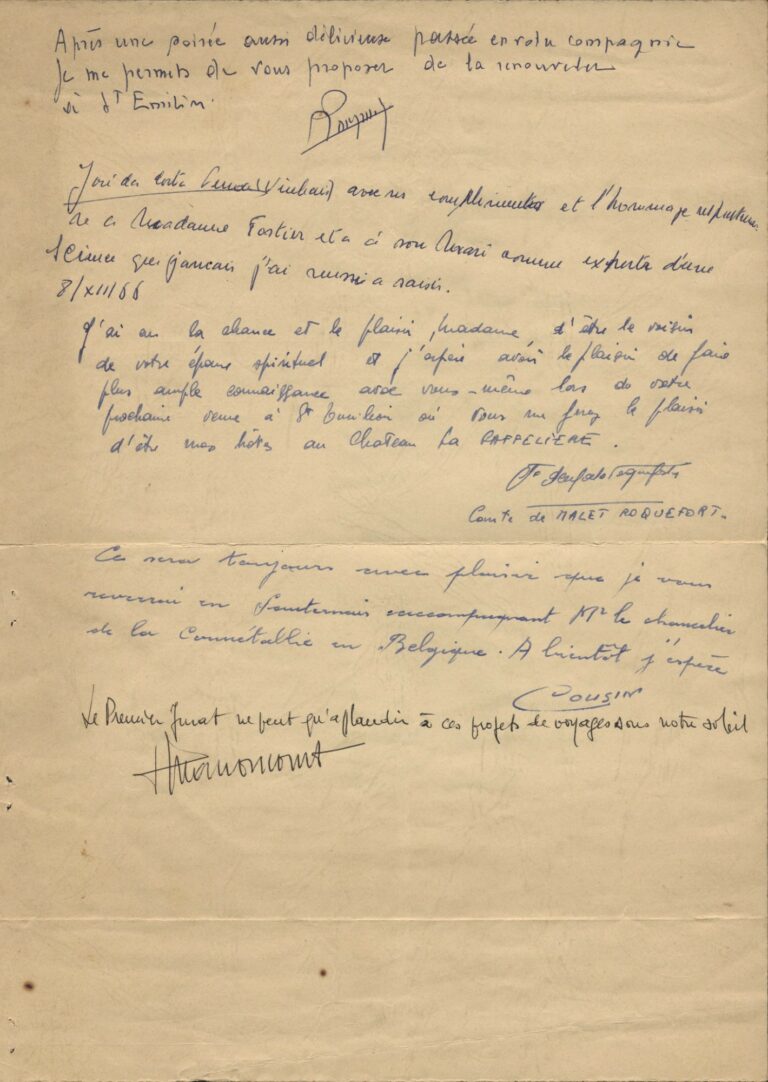 Après une soirée aussi délicieuse passée en votre compagnie
Je me permets de vous proposer de la renouveler
à St Emilion.
José da Costa avec ses compliments et l'hommage
a Madame Fortier et a son Mari comme experts d'une
Science que jamais j'ai reussi a saisir.
8/XII/66
J'ai eu la chance et le plaisir, Madame d'être le voisin
de votre époux spirituel et j'espère avoir le plaisir de faire
plus ample connaissance avec vous-même lors de votre
prochaine venue à St Emilion où vous me ferez le plaisir
d'être mes hôtes au Chateau La GAFFELIERE.
Comte de MALET ROQUEFORT.
Ce sera toujours avec plaisir que je vous
reverrai en Sauternais accompagnant Mr le chancelier
de la Connétablie en Belgique. A bientôt j'espère
COUSIN
Le Premier Jurat ne peut qu'aplaudir à ces projets de voyages sous notre soleil